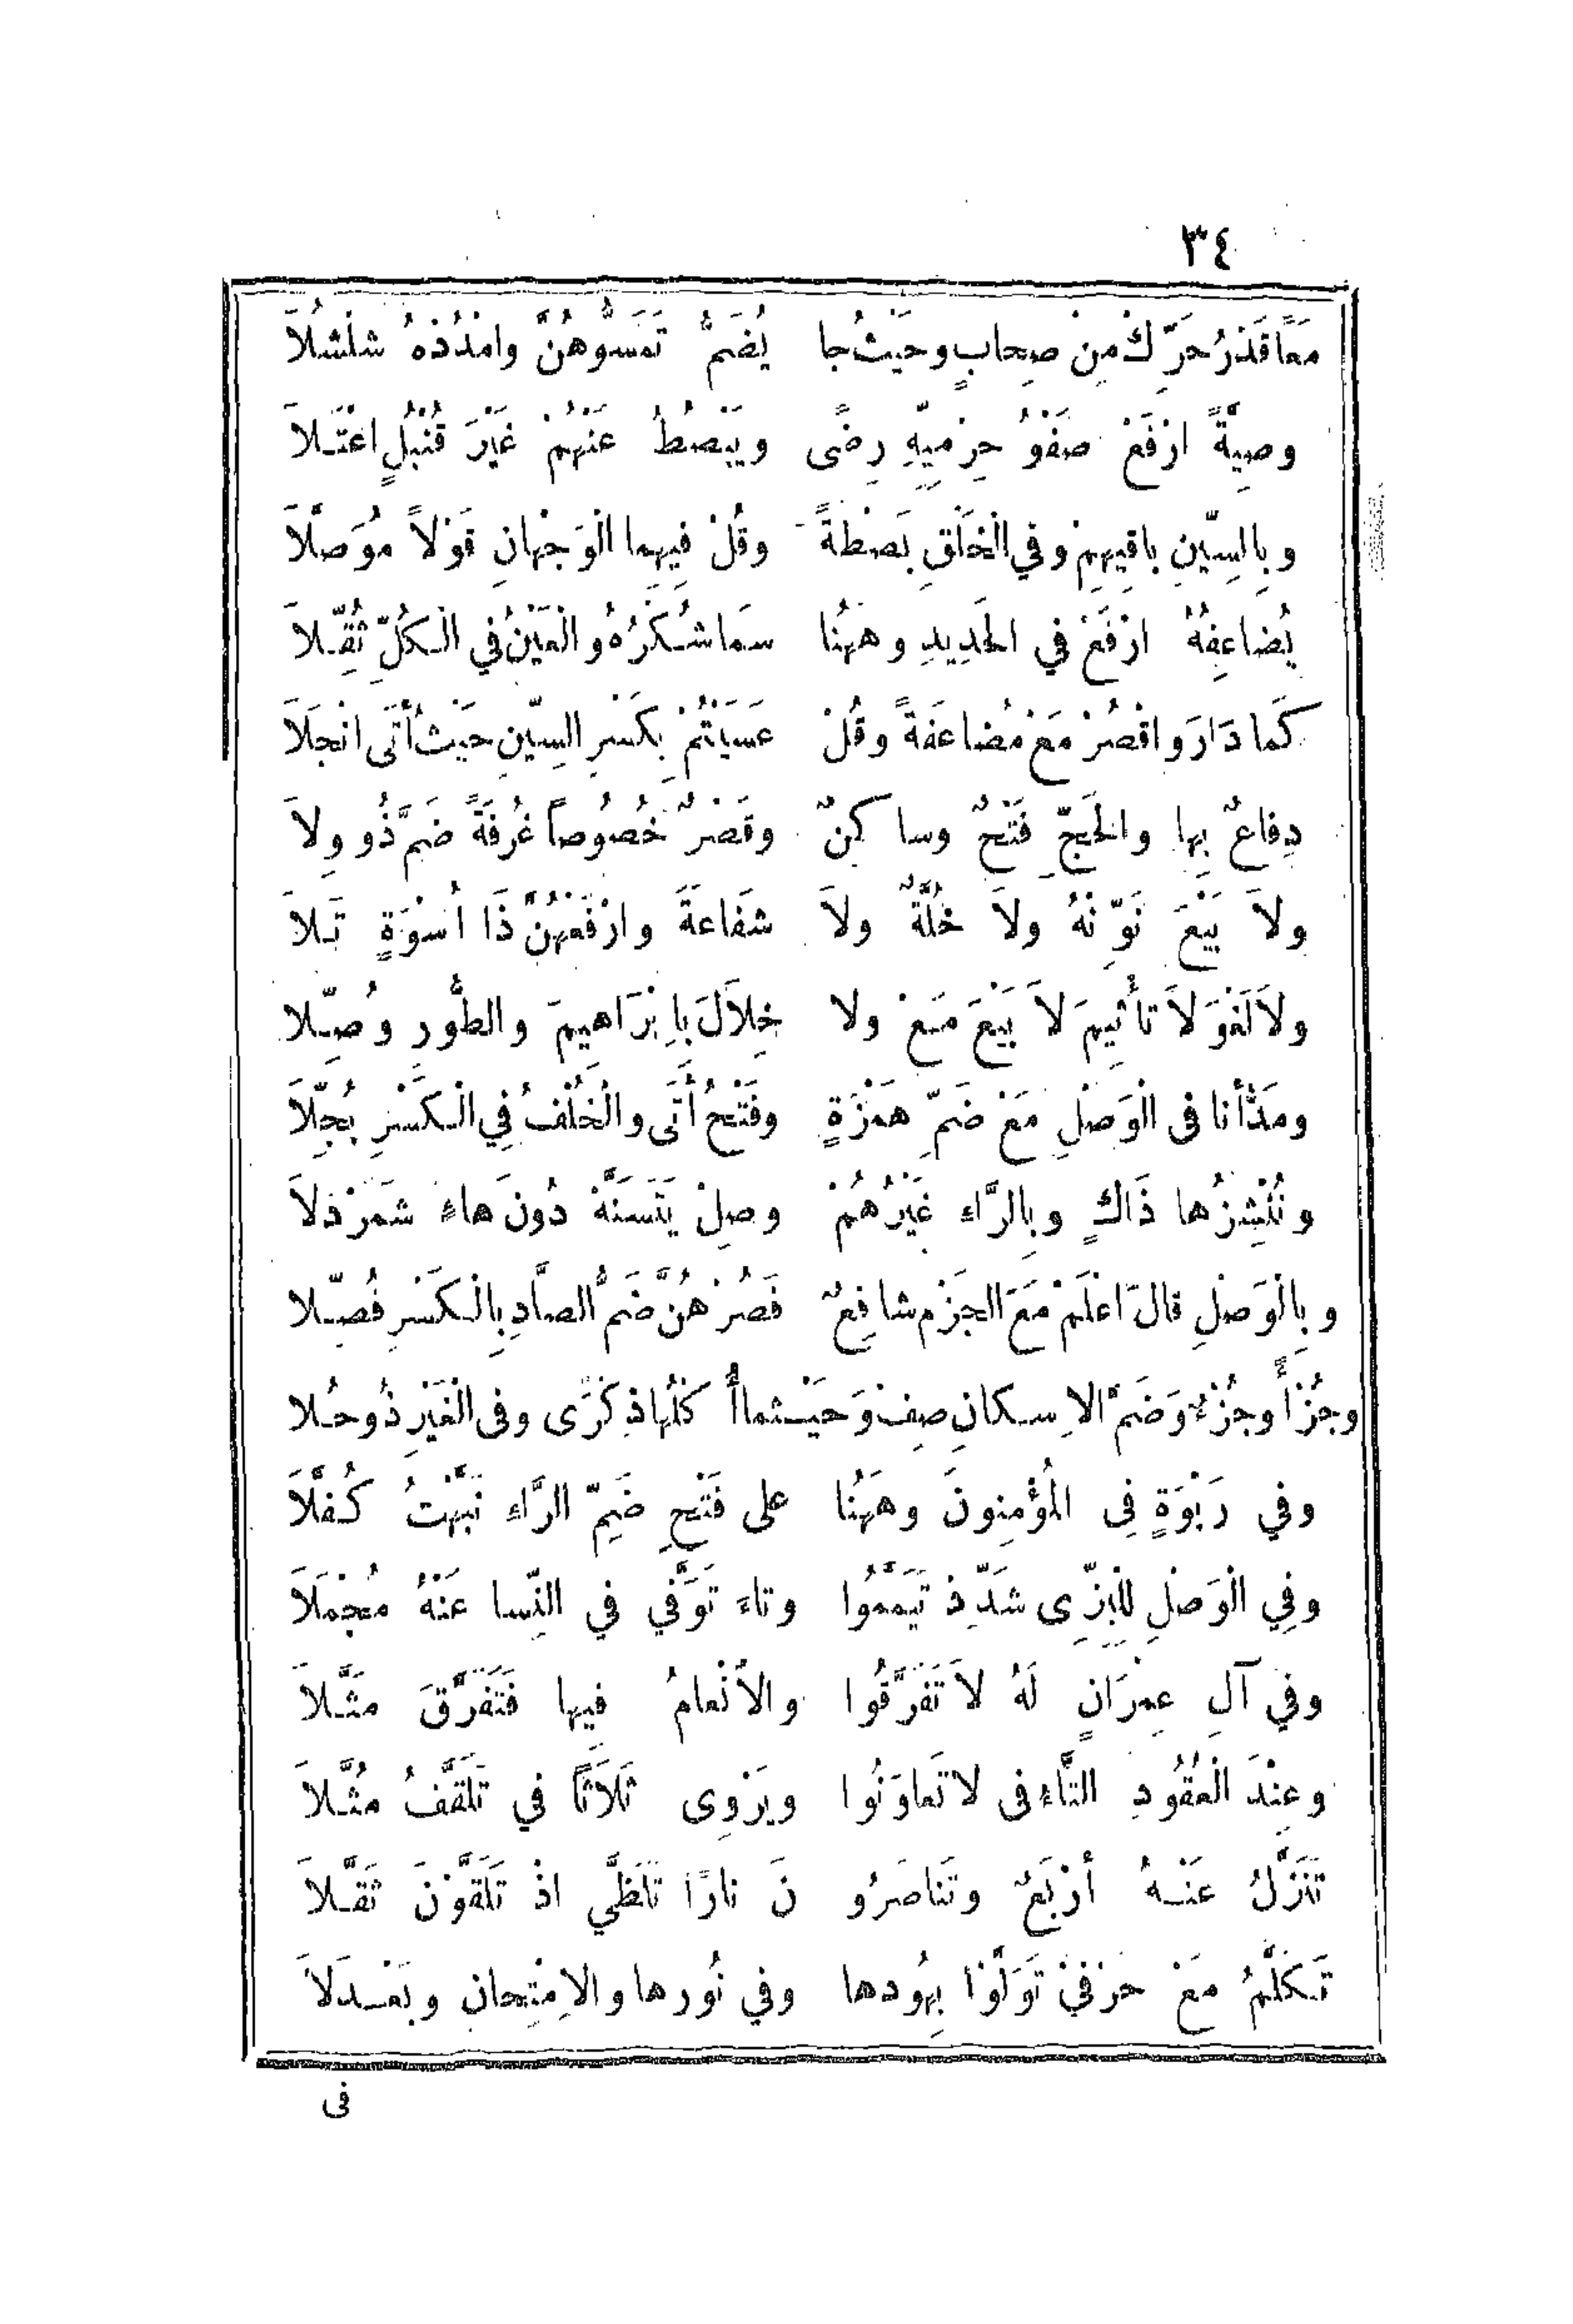 ٣٤
مَعًا قَدْرُ حَرِّكْ مِنْ صِحابٍ وحَيْثُ جا يُضَمُّ تَمَسُّوهُنَّ وامْدُدْهُ شلْشُلَا
وصِيَّةً ارْفَعْ صَفْوُ حِرْمِيِّهِ رِضًى ويَبْصُطُ عَنْهُمْ غَيْرَ قُنْبُلٍ اعْتَلاَ
وبِالسِّينِ باقِيهِمْ وفي الْخَلْقِ بَصْطَةً وقُلْ فِيهِما الْوَجْهانِ قَوْلاً مُوَصَّلَا
يُضاعِفُهُ ارْفَعْ في الحَدِيدِ وهَهُنا سَمَا شُكْرُهُ والْعَيْنُ في الْكُلِّ ثُقِّلاَ
كَما دَارَ واقْصُرْ مَعْ مُضاعَفَةً وقُلْ عَسَيْتُمْ بِكَسْرِ السِّينِ حَيْثُ أتَى انْجَلَا
دِفاعٌ بِها والحَجِّ فَتْحٌ وساكنٌ وقَصْرٌ خُصُوصاً غُرْفَةً ضَمَّ ذُو وِلاَ
ولاَ بَيْعَ نَوِّنْهُ ولاَ خُلَّةٌ ولاَ شَفَاعَةَ وارْفَعْهُنَّ ذَا أُسْوَةٍ تَلاَ
ولاَ لَغْوَ لاَ تأْثِيمَ لاَ بَيْعَ مَعْ ولا خِلاَلَ بإِبْرَاهِيمَ والطُّورِ وُصِّلا
ومَدُّ أنا فى الْوَصْلِ مَعْ ضَمِّ هَمْزَةٍ وفَتْحٌ أتَى والْخُلْفُ فِي الْكَسْرِ بُجِّلاَ
ونُنْشِزُها ذَاكٍ وبِالرَّاءِ غَيْرُهُمْ وصِلْ يَتَسَنَّهْ دُونَ هاءٍ شَمَرْدَلاَ
وبِالْوَصْلِ قالَ اعْلَمْ مَعَ الجَزْمِ شافِعٌ فَصُرْهُنَّ ضَمُّ الصَّادِ بِالْكَسْرِ فُصِّلا
وجُزْأً وجُزْءٌ وَضَمَّ الإِسكانِ صِفْ وَحَيْثُما أُكْلُها ذِكْرًى وفى الْغَيْرِ ذُو حُلا
وفي رَبْوَةٍ فِى المُؤْمِنونَ وهَهُنا على فَتْحِ ضَمِّ الرَّاءِ نَبَّهْتُ كُفَّلَا
وفِي الْوَصْلِ للْبَزِّى شَدِّدْ تَيَمَّمُوا وتاءَ تَوَفَّي في النِّسا عَنْهُ مُجْمِلَا
وفي آلِ عِمْرَانٍ لَهُ لاَ تَفَرَّقُوا والأَنْعامُ فِيها فَتَفَرَّقَ مَثَّلاَ
وعِنْدَ الْعُقُودِ التَّاء فى لا تَعاوَنُوا ويَرْوِى ثَلاَثًا في تَلَقَّفُ مُثَّلاَ
تَنَزَّلُ عَنْهُ أرْبَعٌ وتَناصَرُو نَ نارًا تَلَظَّي اذْ تَلَقَّوْنَ ثَقَّلاَ
تَكَلَّمُ مَعْ حَرْفَيْ تَوَلَّوْا بِهُودها وفي نُورها والاِمْتِحان وبَعْدَلاَ
فى